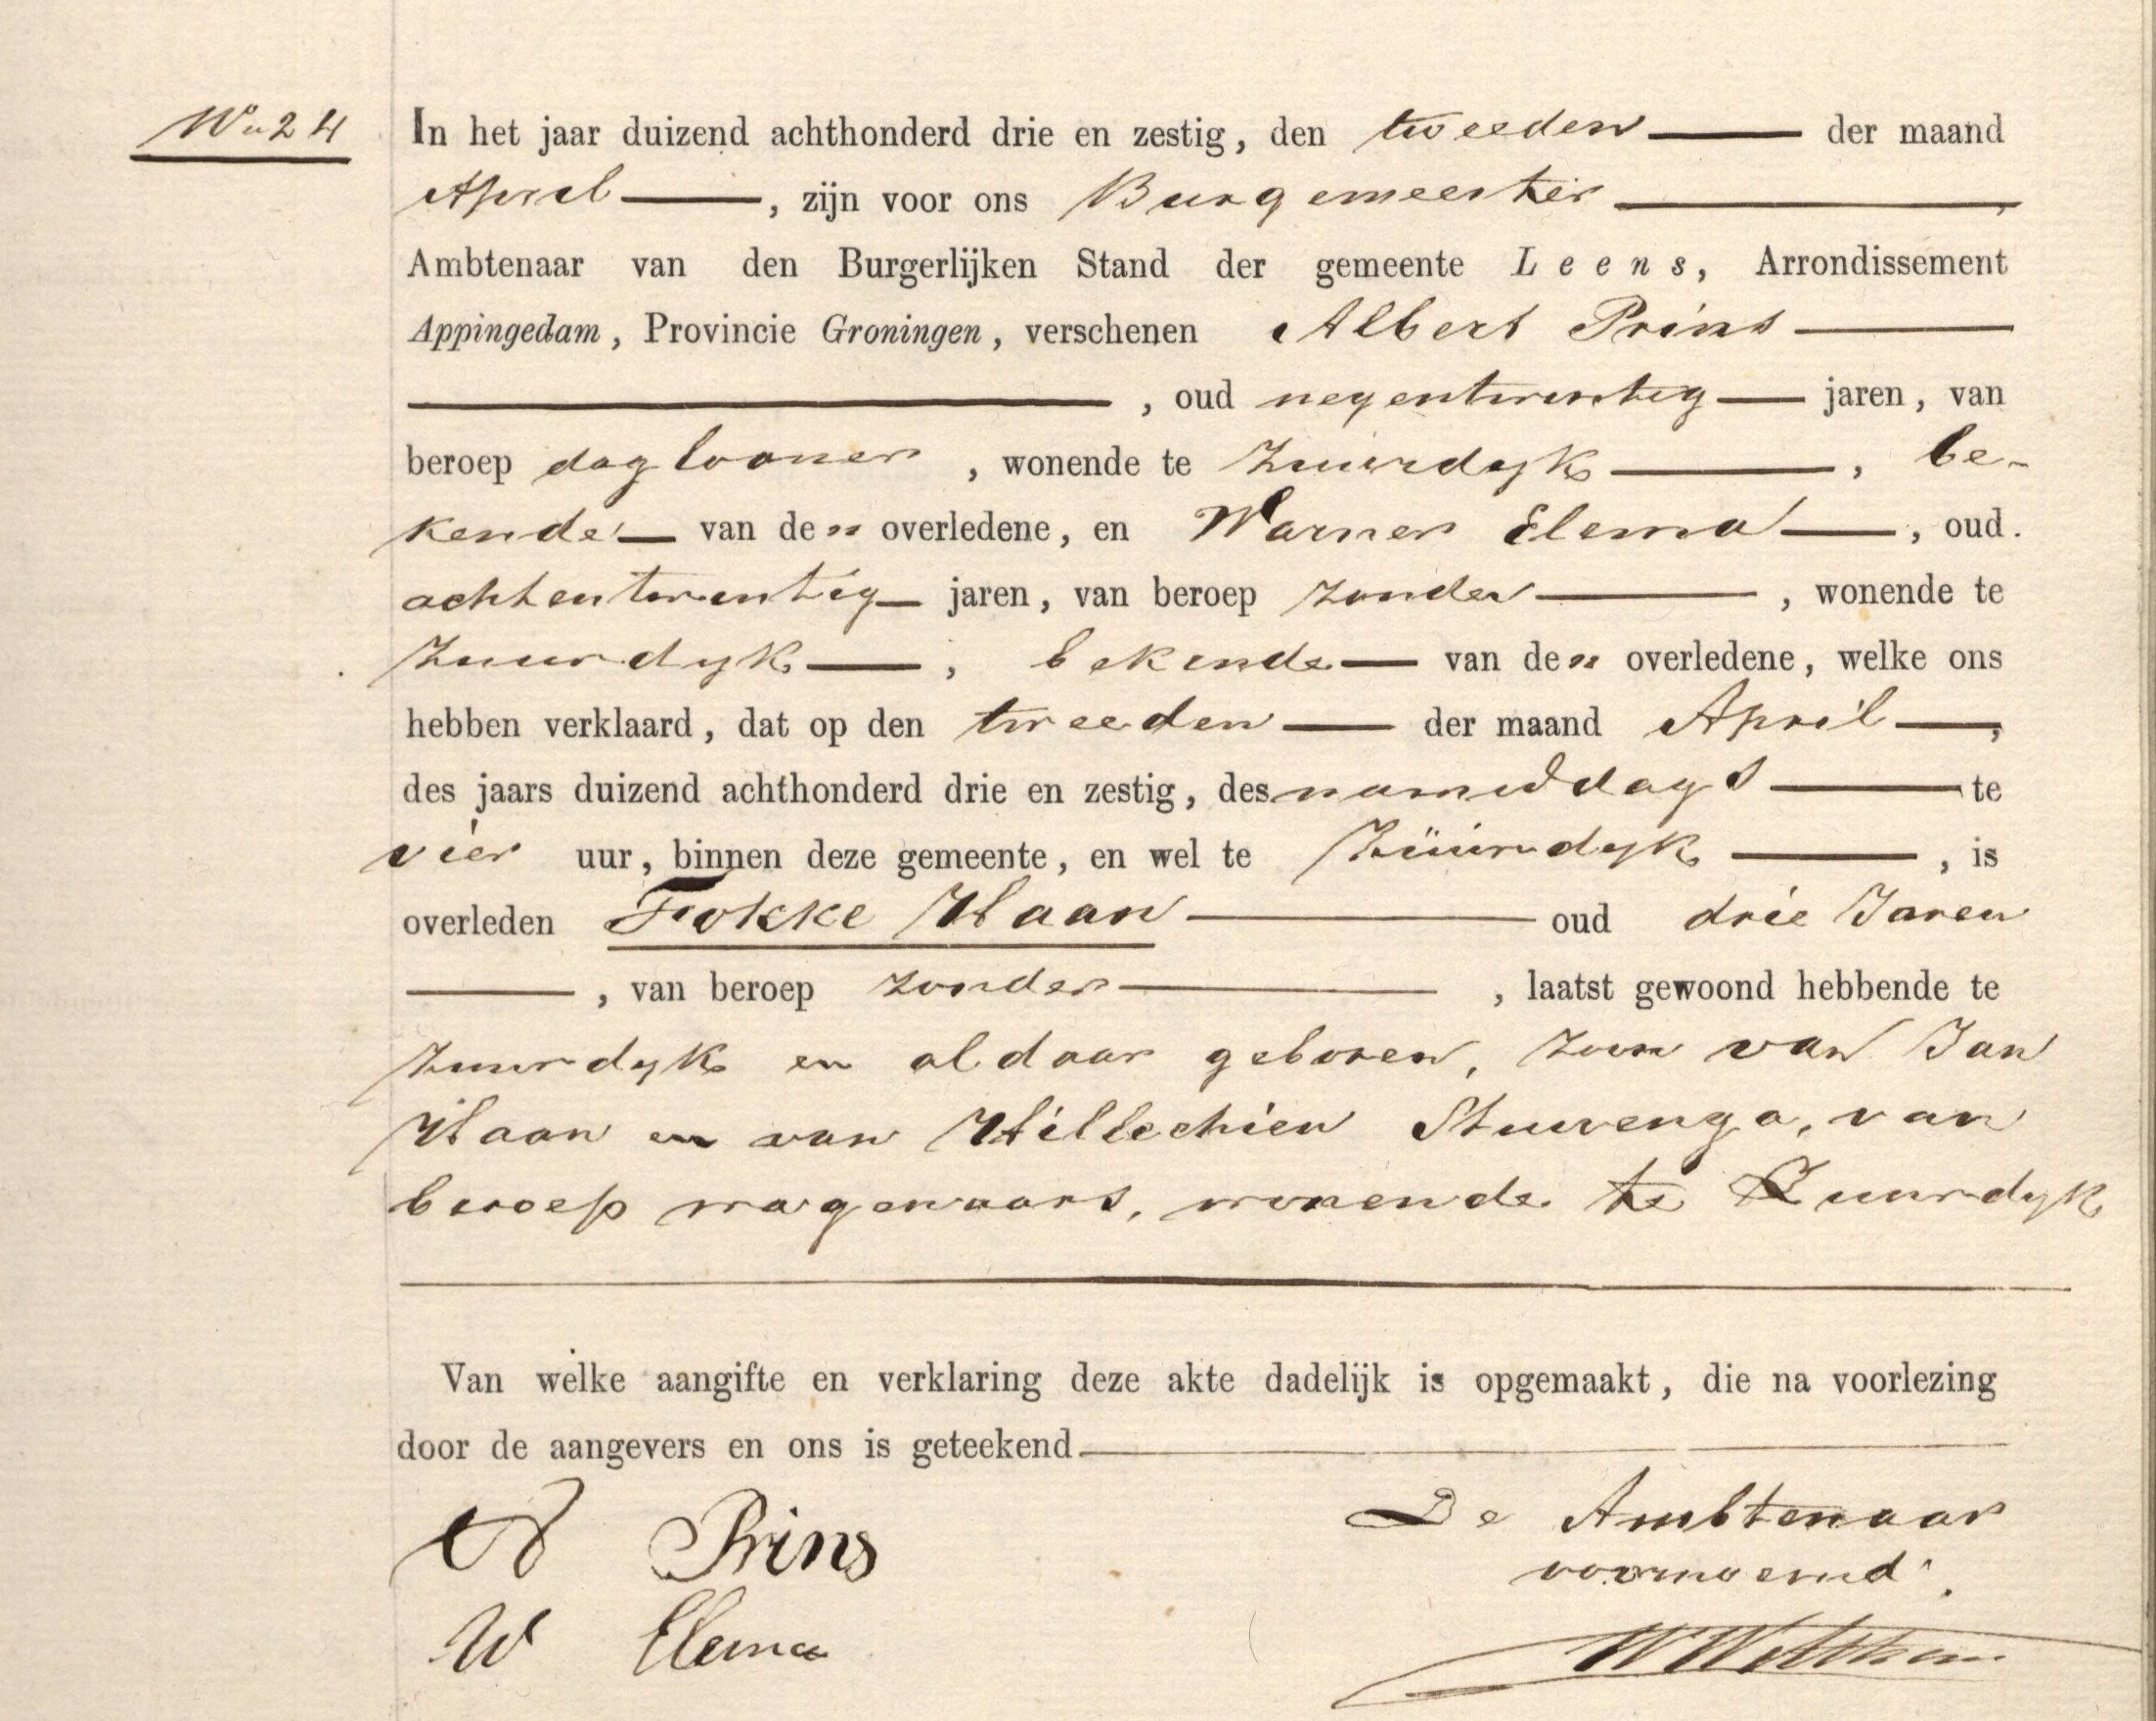 No 24
In het jaar duizend achthonderd drie en zestig, den tweeden der maand
April, zijn voor ons Burgemeester,
Ambtenaar van den Burgerlijken Stand der gemeente Leens, Arrondissement
Appingedam, Provincie Groningen, verschenen Albert Prins
, oud negentwintig jaren, van
beroep daglooner, wonende te Zuurdyk, be-
kende van den overledene, en Warner Elema, oud.
achtentwintig jaren, van beroep zonder, wonende te
Zuurdyk, bekende van den overledene, welke ons
hebben verklaard, dat op den tweeden der maand April,
des jaars duizend achthonderd drie en zestig, des namiddags te
vier uur, binnen deze gemeente, en wel te Zuurdyk, is
overleden Fokke Haan oud drie Jaren
, van beroep zonder, laatst gewoond hebbende te
Zuurdyk en aldaar geboren, zoon van Jan
Haan en van Hillechien Stuivenga, van
beroep wagenaars, wonende te Zuurdyk
Van welke aangifte en verklaring deze akte dadelijk is opgemaakt, die na voorlezing
door de aangevers en ons is geteekend
A Prins
De Ambtenaar
voornoemd.
W Elema